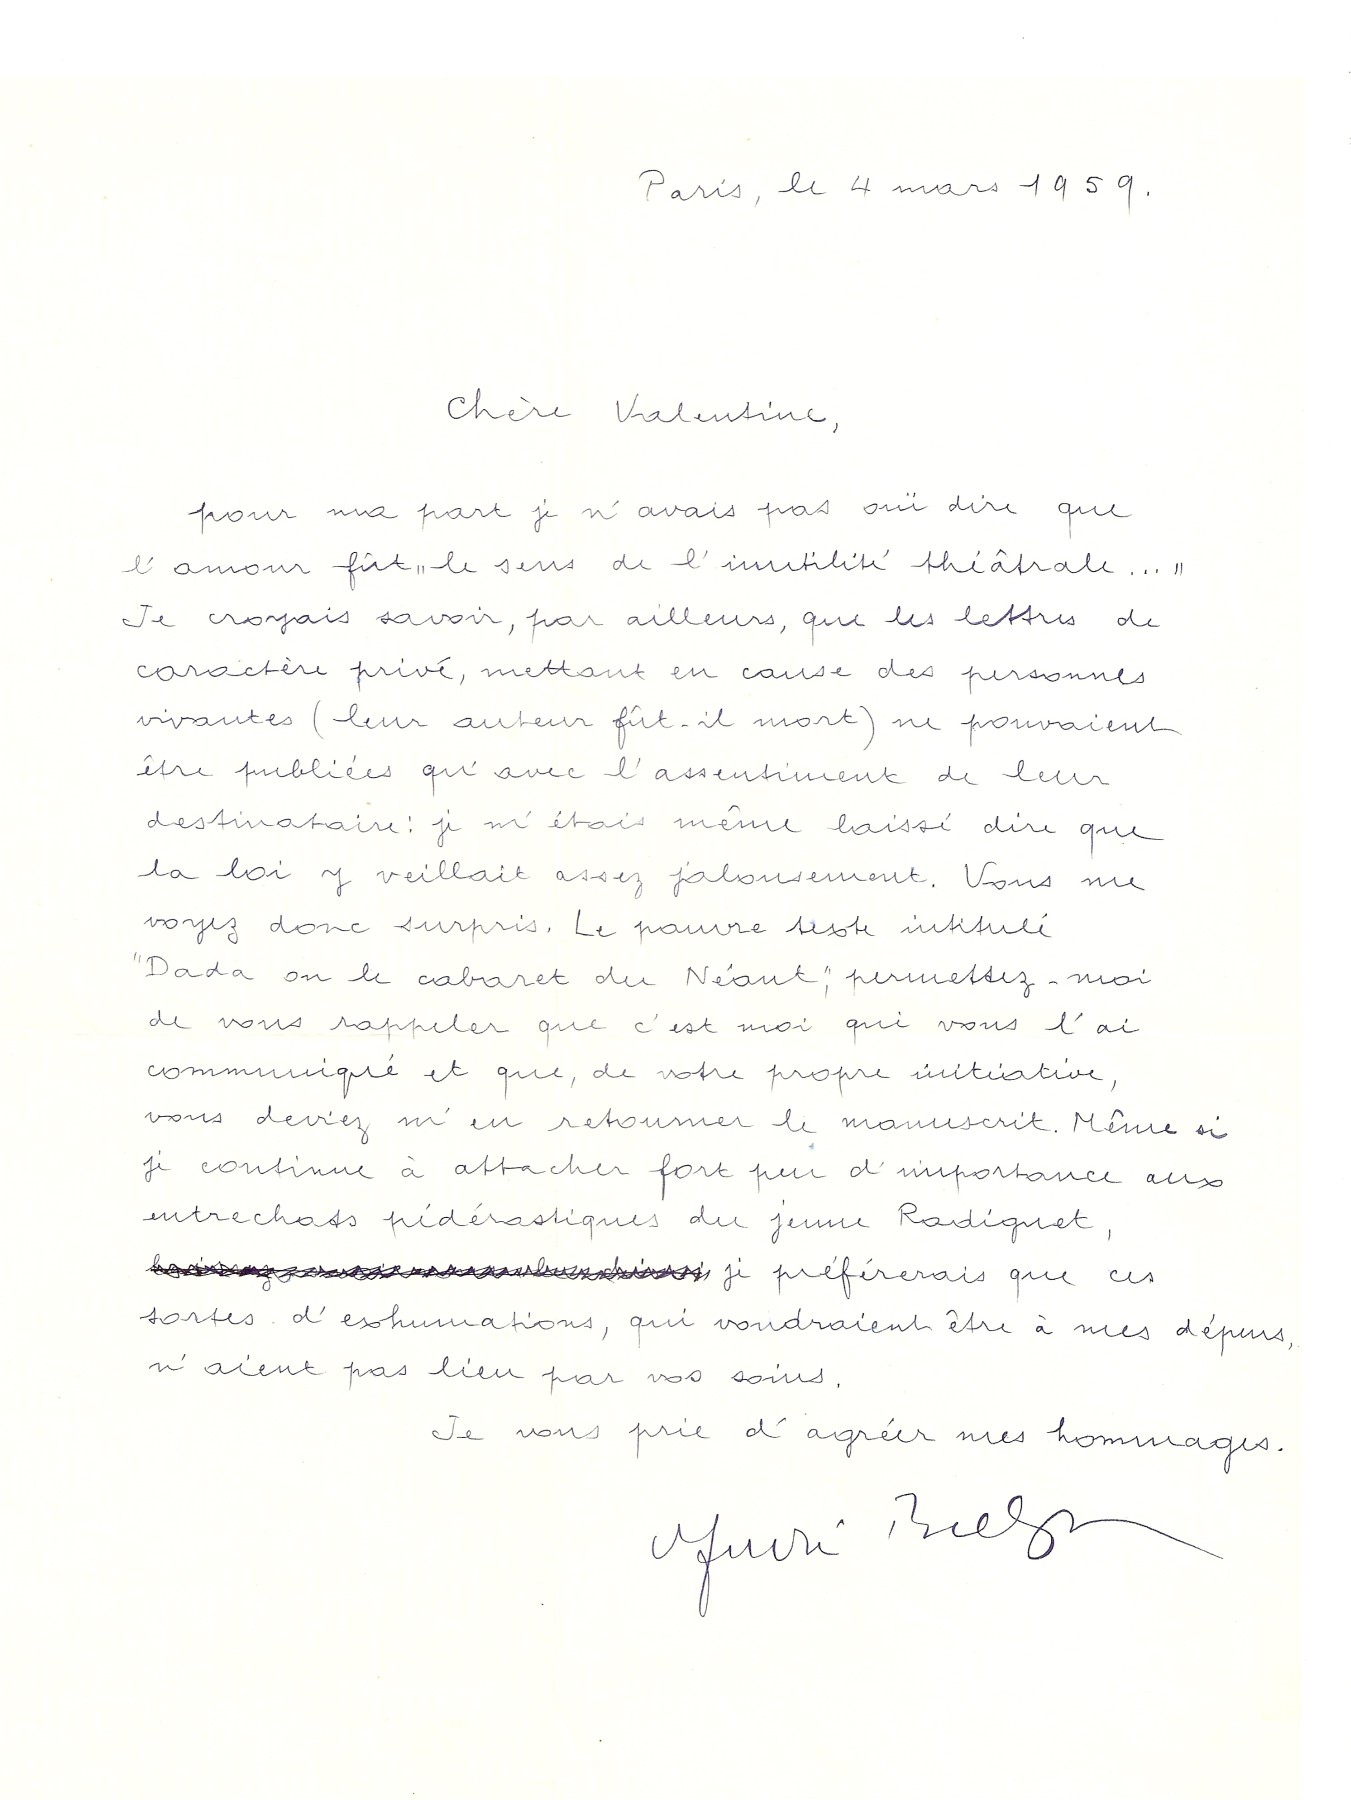 Paris, le 4 mars 1959.
Chère Valentine,
pour ma part je n'avais pas ouï dire que
l'amour fût "le sens de l'inutilité théâtrale..."
Je croyais savoir, par ailleurs, que les lettres de
caractère privé, mettant en cause des personnes
vivantes (leur auteur fût-il mort) ne pouvaient
être publiées qu'avec l'assentiment de leur
destinataire: je m'étais même laissé dire que
la loi y veillait assez jalousement. Vous me
voyez donc surpris. Le pauvre texte intitulé
"Dada ou le cabaret du Néant", permettez-moi
de vous rappeler que c'est moi qui vous l'ai
communiqué et que, de votre propre initiative,
vous deviez m'en retourner le manuscrit. Même si
je continue à attacher fort peu d'importance aux
entrechats pédérastiques du jeune Radiguet,
je préférerais que ces
sortes d'exhumations, qui voudraient être à mes dépens,
n'aient pas lieu par vos soins.
Je vous prie d'agréer mes hommages.
André Breton